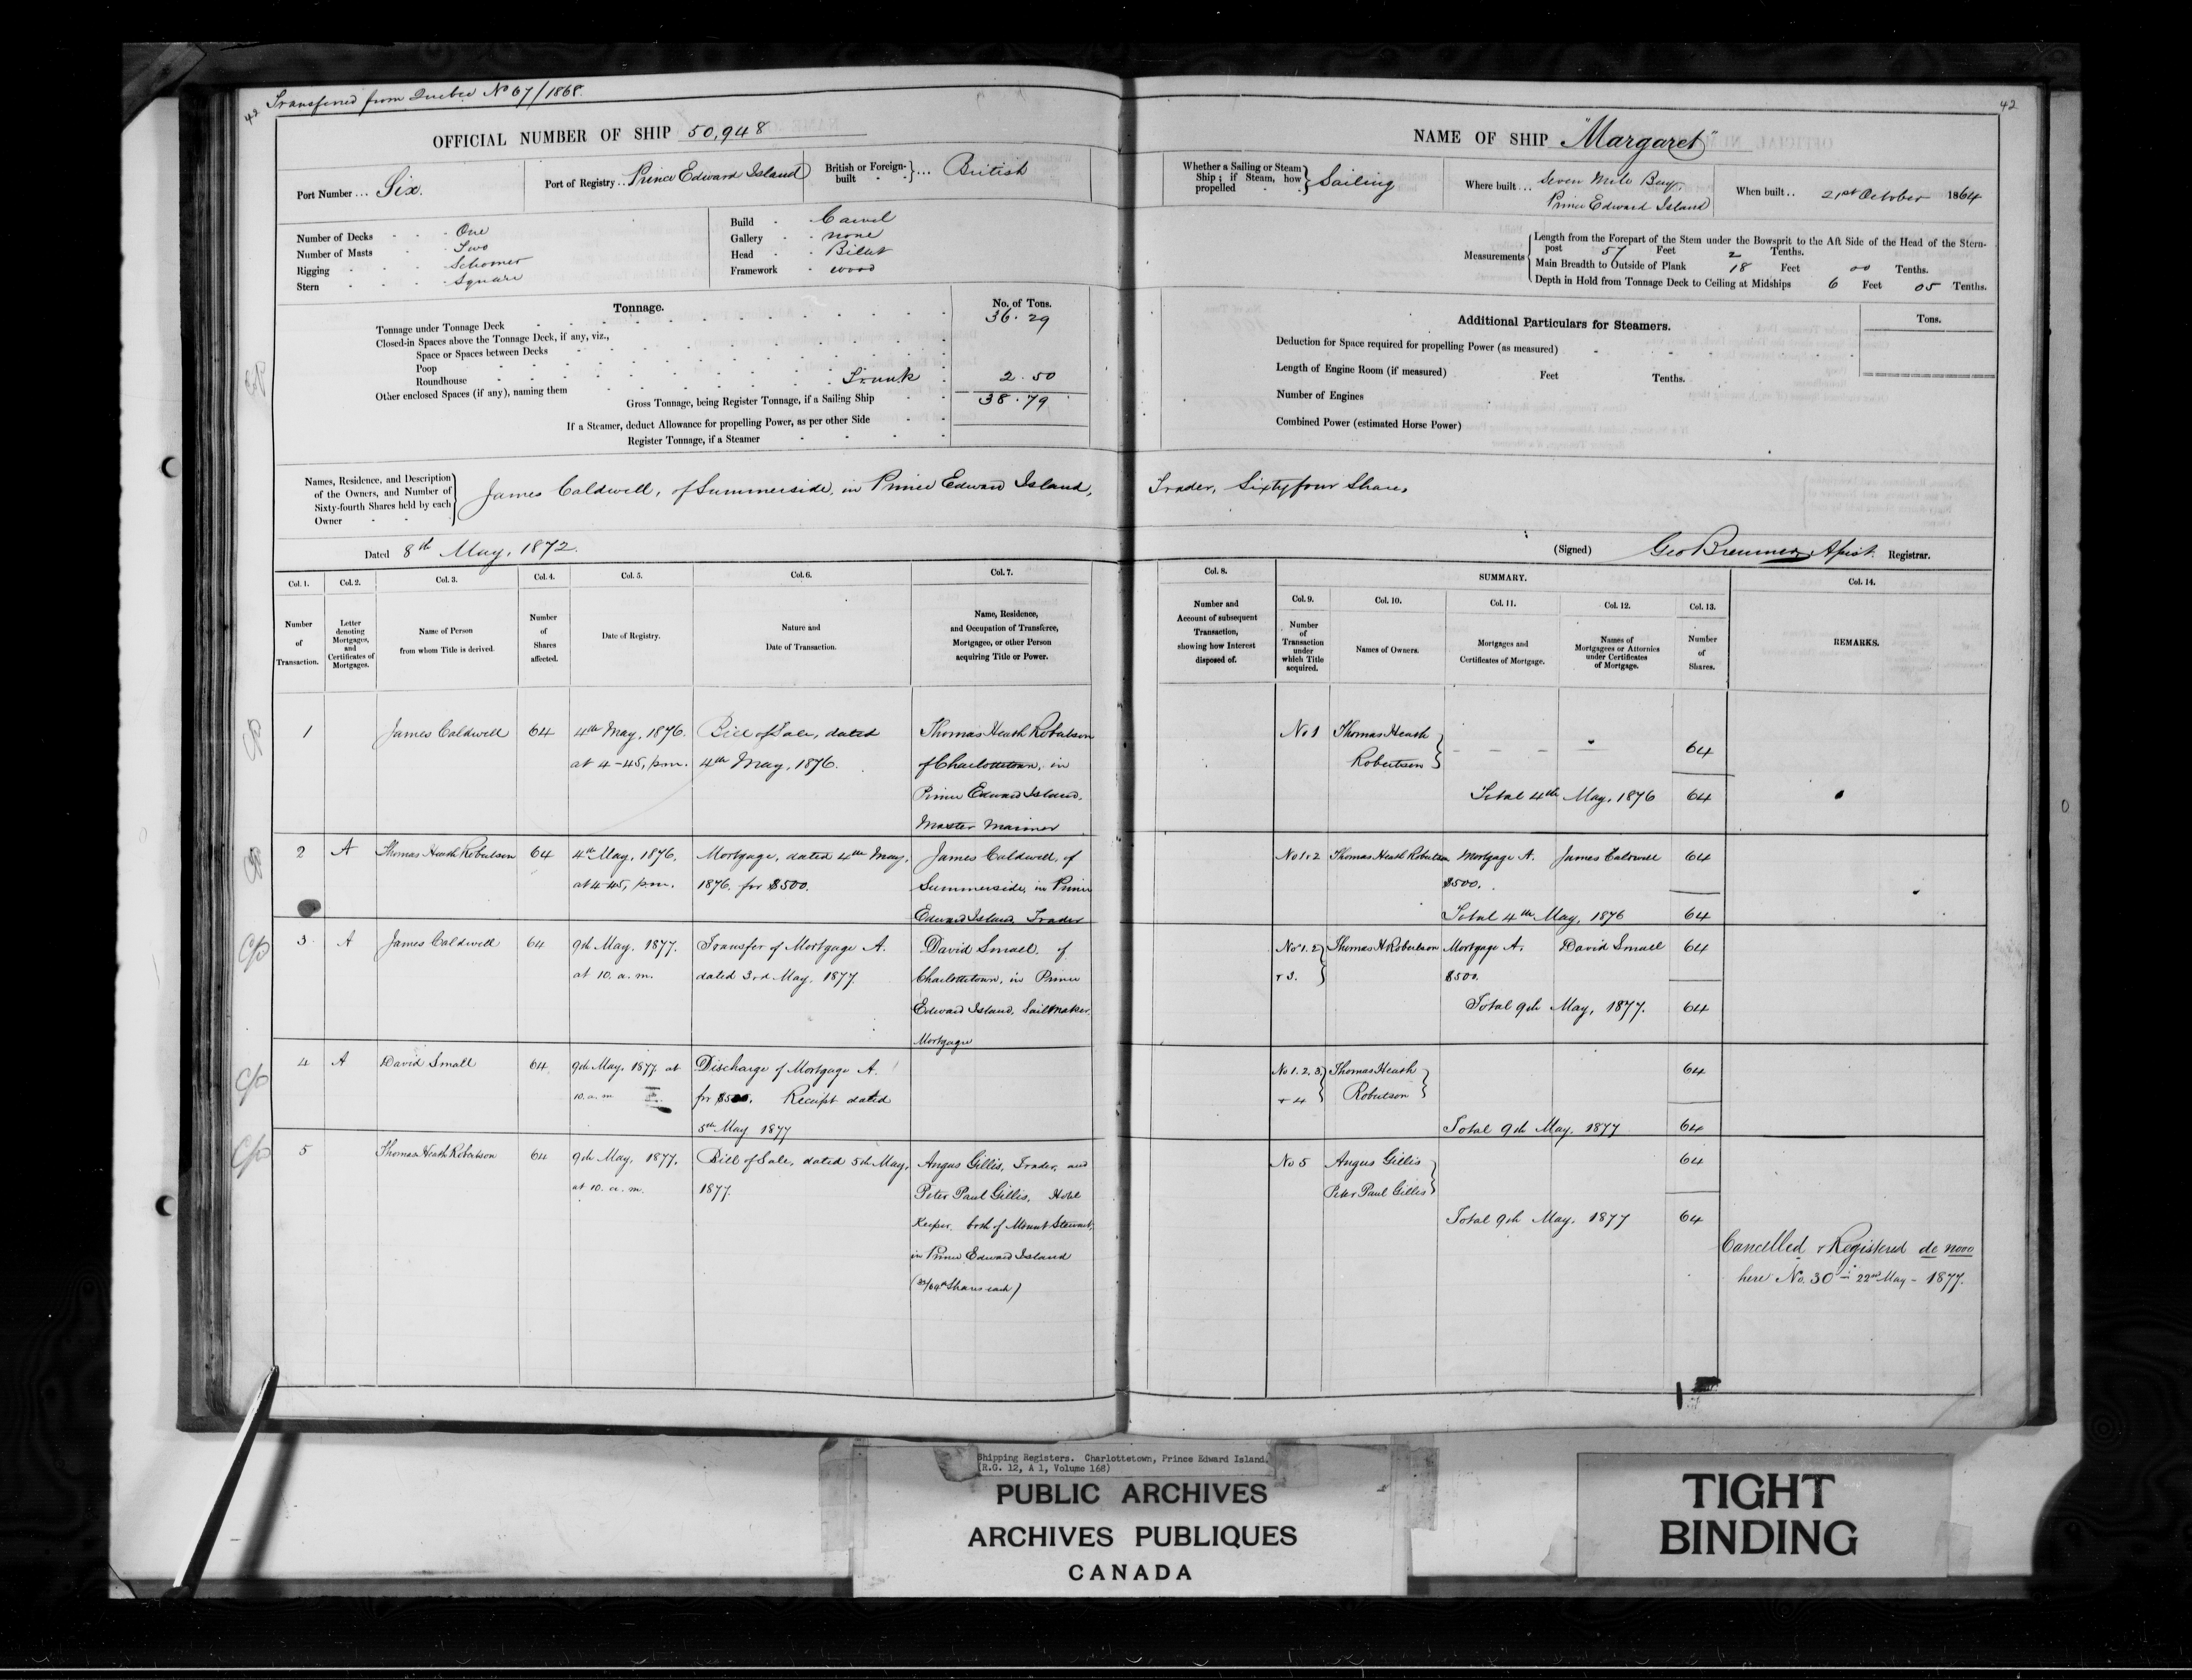 42 Transferred from Quebec No 67/1868.
42
OFFICIAL NUMBER OF SHIP 50,948
NAME OF SHIP "Margaret"
Port Number... Six.
Port of Registry... Prince Edward Island
British or Foreign-built } ... British
Whether a Sailing or Steam Ship; if Steam, how propelled } Sailing
Where built... Seven Mile Bay, Prince Edward Island
When built.. 21st October 1864
Number of Decks One
Number of Masts Two
Rigging Schooner
Stern Square
Build Carvel
Gallery none
Head Billet
Framework wood
Measurements
Length from the Forepart of the Stem under the Bowsprit to the Aft Side of the Head of the Stern-
post 57 Feet 2 Tenths.
Main Breadth to Outside of Plank 18 Feet 00 Tenths.
Depth in Hold from Tonnage Deck to Ceiling at Midships 6 Feet 05 Tenths.
Tonnage.
No. of Tons.
Tonnage under Tonnage Deck 36.29
Closed-in Spaces above the Tonnage Deck, if any, viz.,
Space or Spaces between Decks
Poop
Roundhouse
Other enclosed Spaces (if any), naming them Trunk 2.50
Gross Tonnage, being Register Tonnage, if a Sailing Ship 38.79
If a Steamer, deduct Allowance for propelling Power, as per other Side
Register Tonnage, if a Steamer
Additional Particulars for Steamers.
Tons.
Deduction for Space required for propelling Power (as measured)
Length of Engine Room (if measured) Feet Tenths.
Number of Engines
Combined Power (estimated Horse Power)
Names, Residence, and Description
of the Owners, and Number of
Sixty-fourth Shares held by each
Owner
James Caldwell, of Summerside, in Prince Edward Island, Trader, Sixty four Shares
Dated 8th May, 1872.
(Signed) Geo Bremner, Registrar.
Col. 1. Col. 2. Col. 3. Col. 4. Col. 5. Col. 6. Col. 7.
Number of Transaction.
Letter denoting Mortgages, and Certificates of Mortgages.
Name of Person from whom Title is derived.
Number of Shares affected.
Date of Registry.
Nature and Date of Transaction.
Name, Residence, and Occupation of Transferee, Mortgagee, or other Person acquiring Title or Power.
Col. 8.
Number and Account of subsequent Transaction, showing how Interest disposed of.
SUMMARY.
Col. 9. Col. 10. Col. 11. Col. 12. Col. 13. Col. 14.
Number of Transaction under which Title acquired.
Names of Owners.
Mortgages and Certificates of Mortgage.
Names of Mortgagees or Attornies under Certificates of Mortgage.
Number of Shares.
REMARKS.
1 James Caldwell 64 4th May, 1876. Bill of Sale, dated Thomas Heath Robertson
at 4-45, p.m. 4th May, 1876. of Charlottetown, in
Prince Edward Island,
Master Mariner
No 1 Thomas Heath Robertson 64
Total 4th May, 1876 64
2 A Thomas Heath Robertson 64 4th May, 1876. Mortgage, dated 4th May, James Caldwell, of
at 4-45, p.m. 1876. for $500. Summerside, in Prince
Edward Island Trader
No 1 & 2 Thomas Heath Robertson Mortgage A. James Caldwell 64
$500.
Total 4th May, 1876 64
3 A James Caldwell 64 9th May, 1877. Transfer of Mortgage A. David Small, of
at 10. a.m. dated 3rd May, 1877. Charlottetown, in Prince
Edward Island, Sailmaker,
Mortgagee
No 1. 2 & 3. Thomas H Robertson Mortgage A. David Small 64
$500.
Total 9th May, 1877. 64
4 A David Small 64 9th May, 1877 at Discharge of Mortgage A.
10. a.m for $500. Receipt dated
5th May 1877
No 1. 2. 3. & 4 Thomas Heath Robertson 64
Total 9th May, 1877 64
5 Thomas Heath Robertson 64 9th May, 1877. Bill of Sale, dated 5th May, Angus Gillis, Trader, and
at 10. a.m. 1877. Peter Paul Gillis, Hotel
Keeper, both of Mount Stewart,
in Prince Edward Island
(32/64th Shares each)
No 5 Angus Gillis 64
Peter Paul Gillis
Total 9th May, 1877 64
Cancelled & Registered de novo
here No. 30 - 22nd May - 1877.
Shipping Registers. Charlottetown, Prince Edward Island.
(R.G. 12, A 1, Volume 168)
PUBLIC ARCHIVES
ARCHIVES PUBLIQUES
CANADA
TIGHT
BINDING